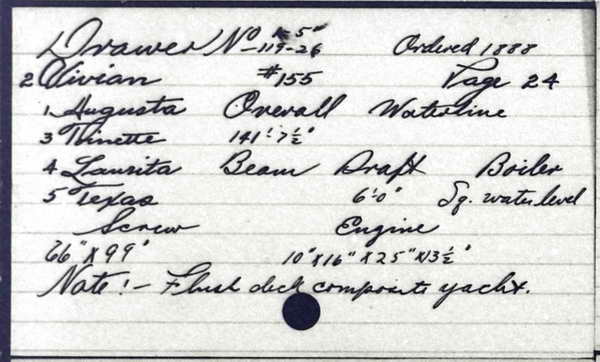 Drawer No K-5" -119-26 Ordered 1888
2 Vivian #155 Page 24
1 Augusta Overall Waterline
3 Ninette 141'-7½"
4 Laurita Beam Draft Boiler
5 Texas 6'-0" Sq. water level
Screw Engine
66" X 99" 10" X 16" X 25" X 13½"
Note!- Flush deck composite yacht.